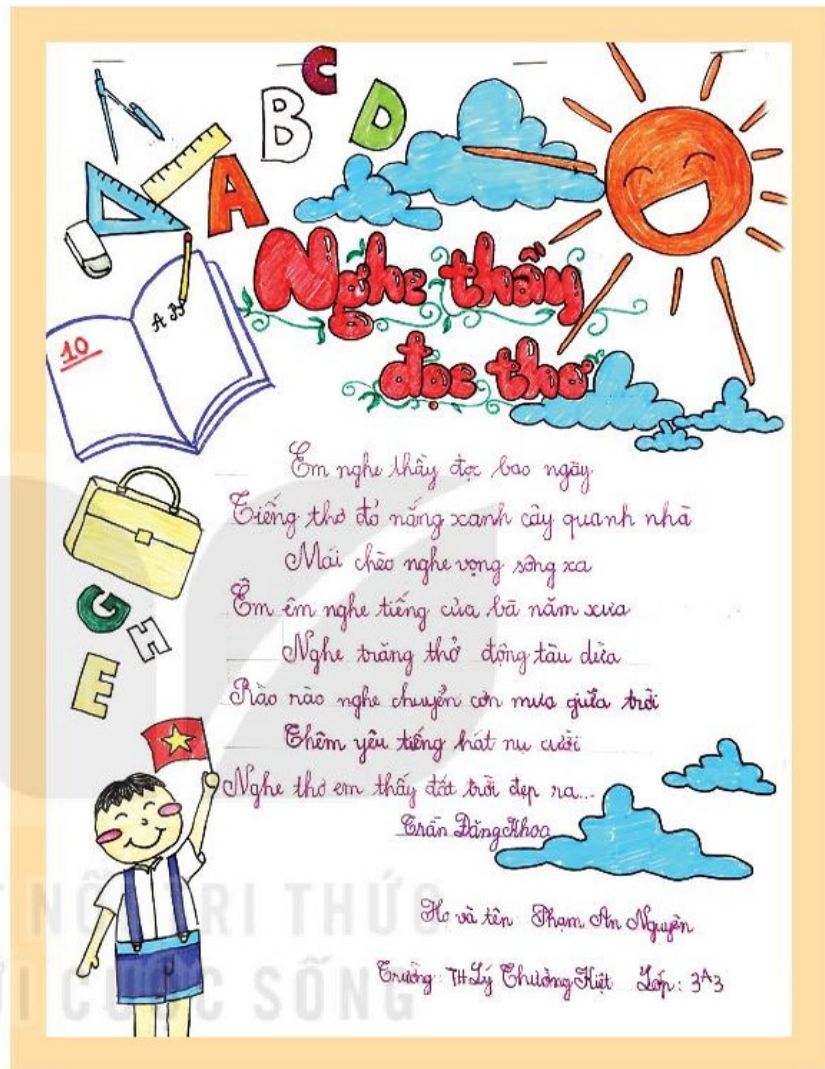 C
B D
A
Nghe thầy
đọc thơ
10
A B
Em nghe thầy đọc bao ngày
Tiếng thơ đỏ nắng xanh cây quanh nhà
Mái chèo nghe vọng sông xa
Êm êm nghe tiếng của bà năm xưa
Nghe trăng thở động tàu dừa
Rào rào nghe chuyển cơn mưa giữa trời
Thêm yêu tiếng hát nụ cười
Nghe thơ em thấy đất trời đẹp ra...
Trần Đăng Khoa
G
H
E
NỐI TRI THỨC
CUỘC SỐNG
Họ và tên: Phạm An Nguyên
Trường: TH Lý Thường Kiệt Lớp: 3A3